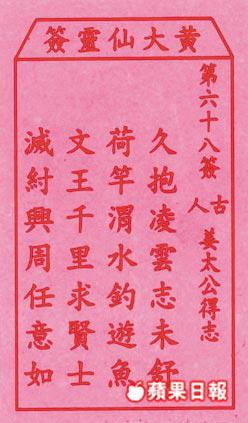 黃大仙靈簽
第六十八簽
古人 姜太公得志
久抱凌雲志未舒
荷竿渭水釣遊魚
文王千里求賢士
滅紂興周任意如
蘋果日報